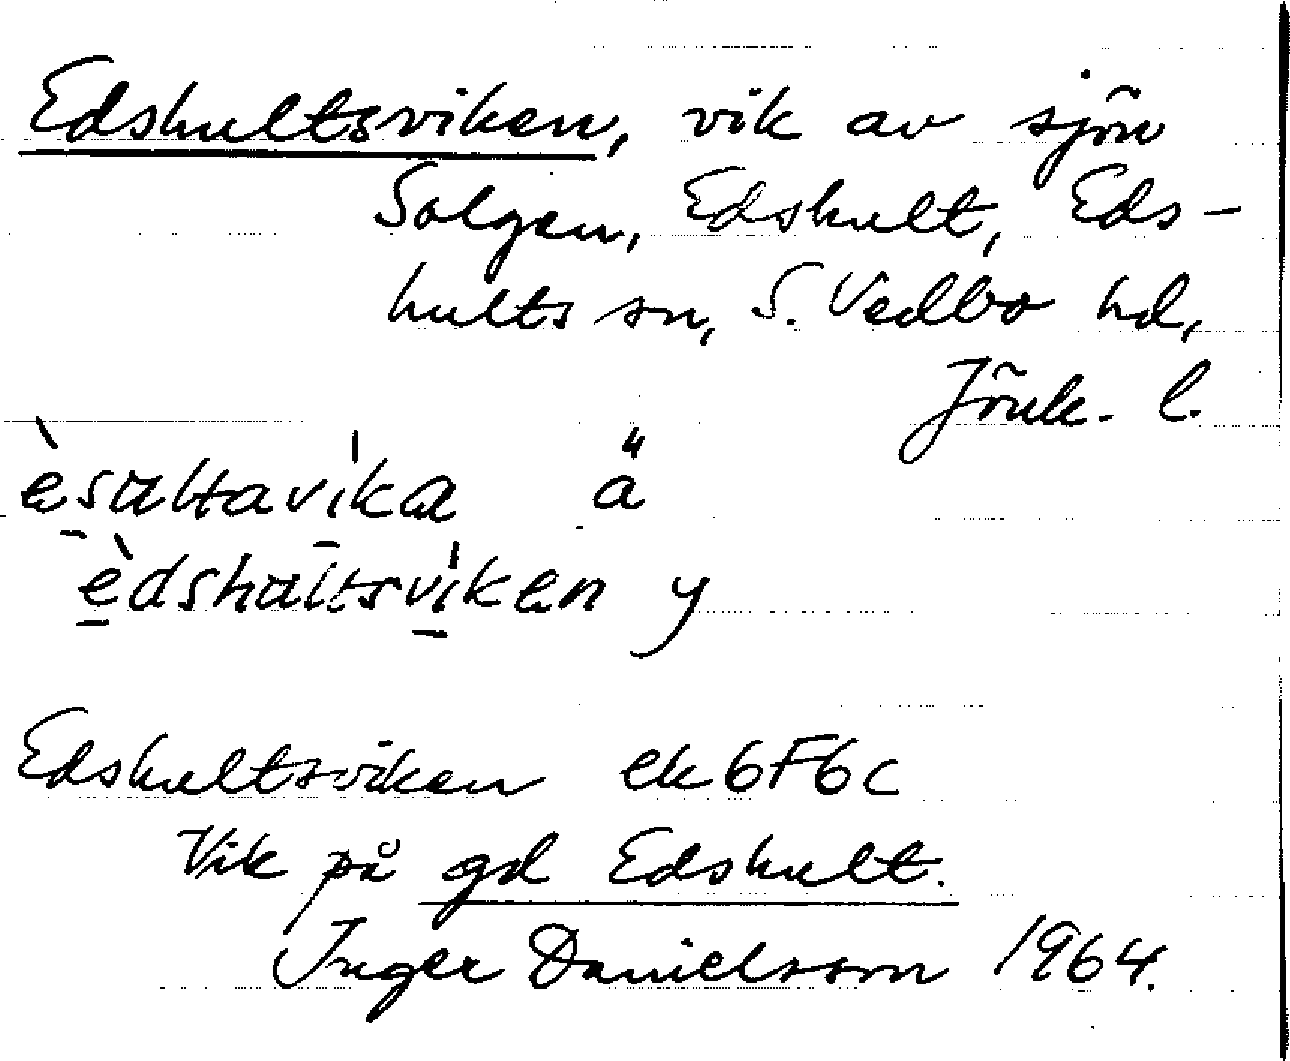 Edshultsviken, vik av sjön
Solgen, Edshult, Eds-
hults sn, S. Vedbo hd,
Jönk. l.
è̱saltavi̱ka ä
è̱dshaltsvi̱ken y
Edshultsviken ek6F6c
Vik på gd Edshult.
Inger Danielsson 1964.